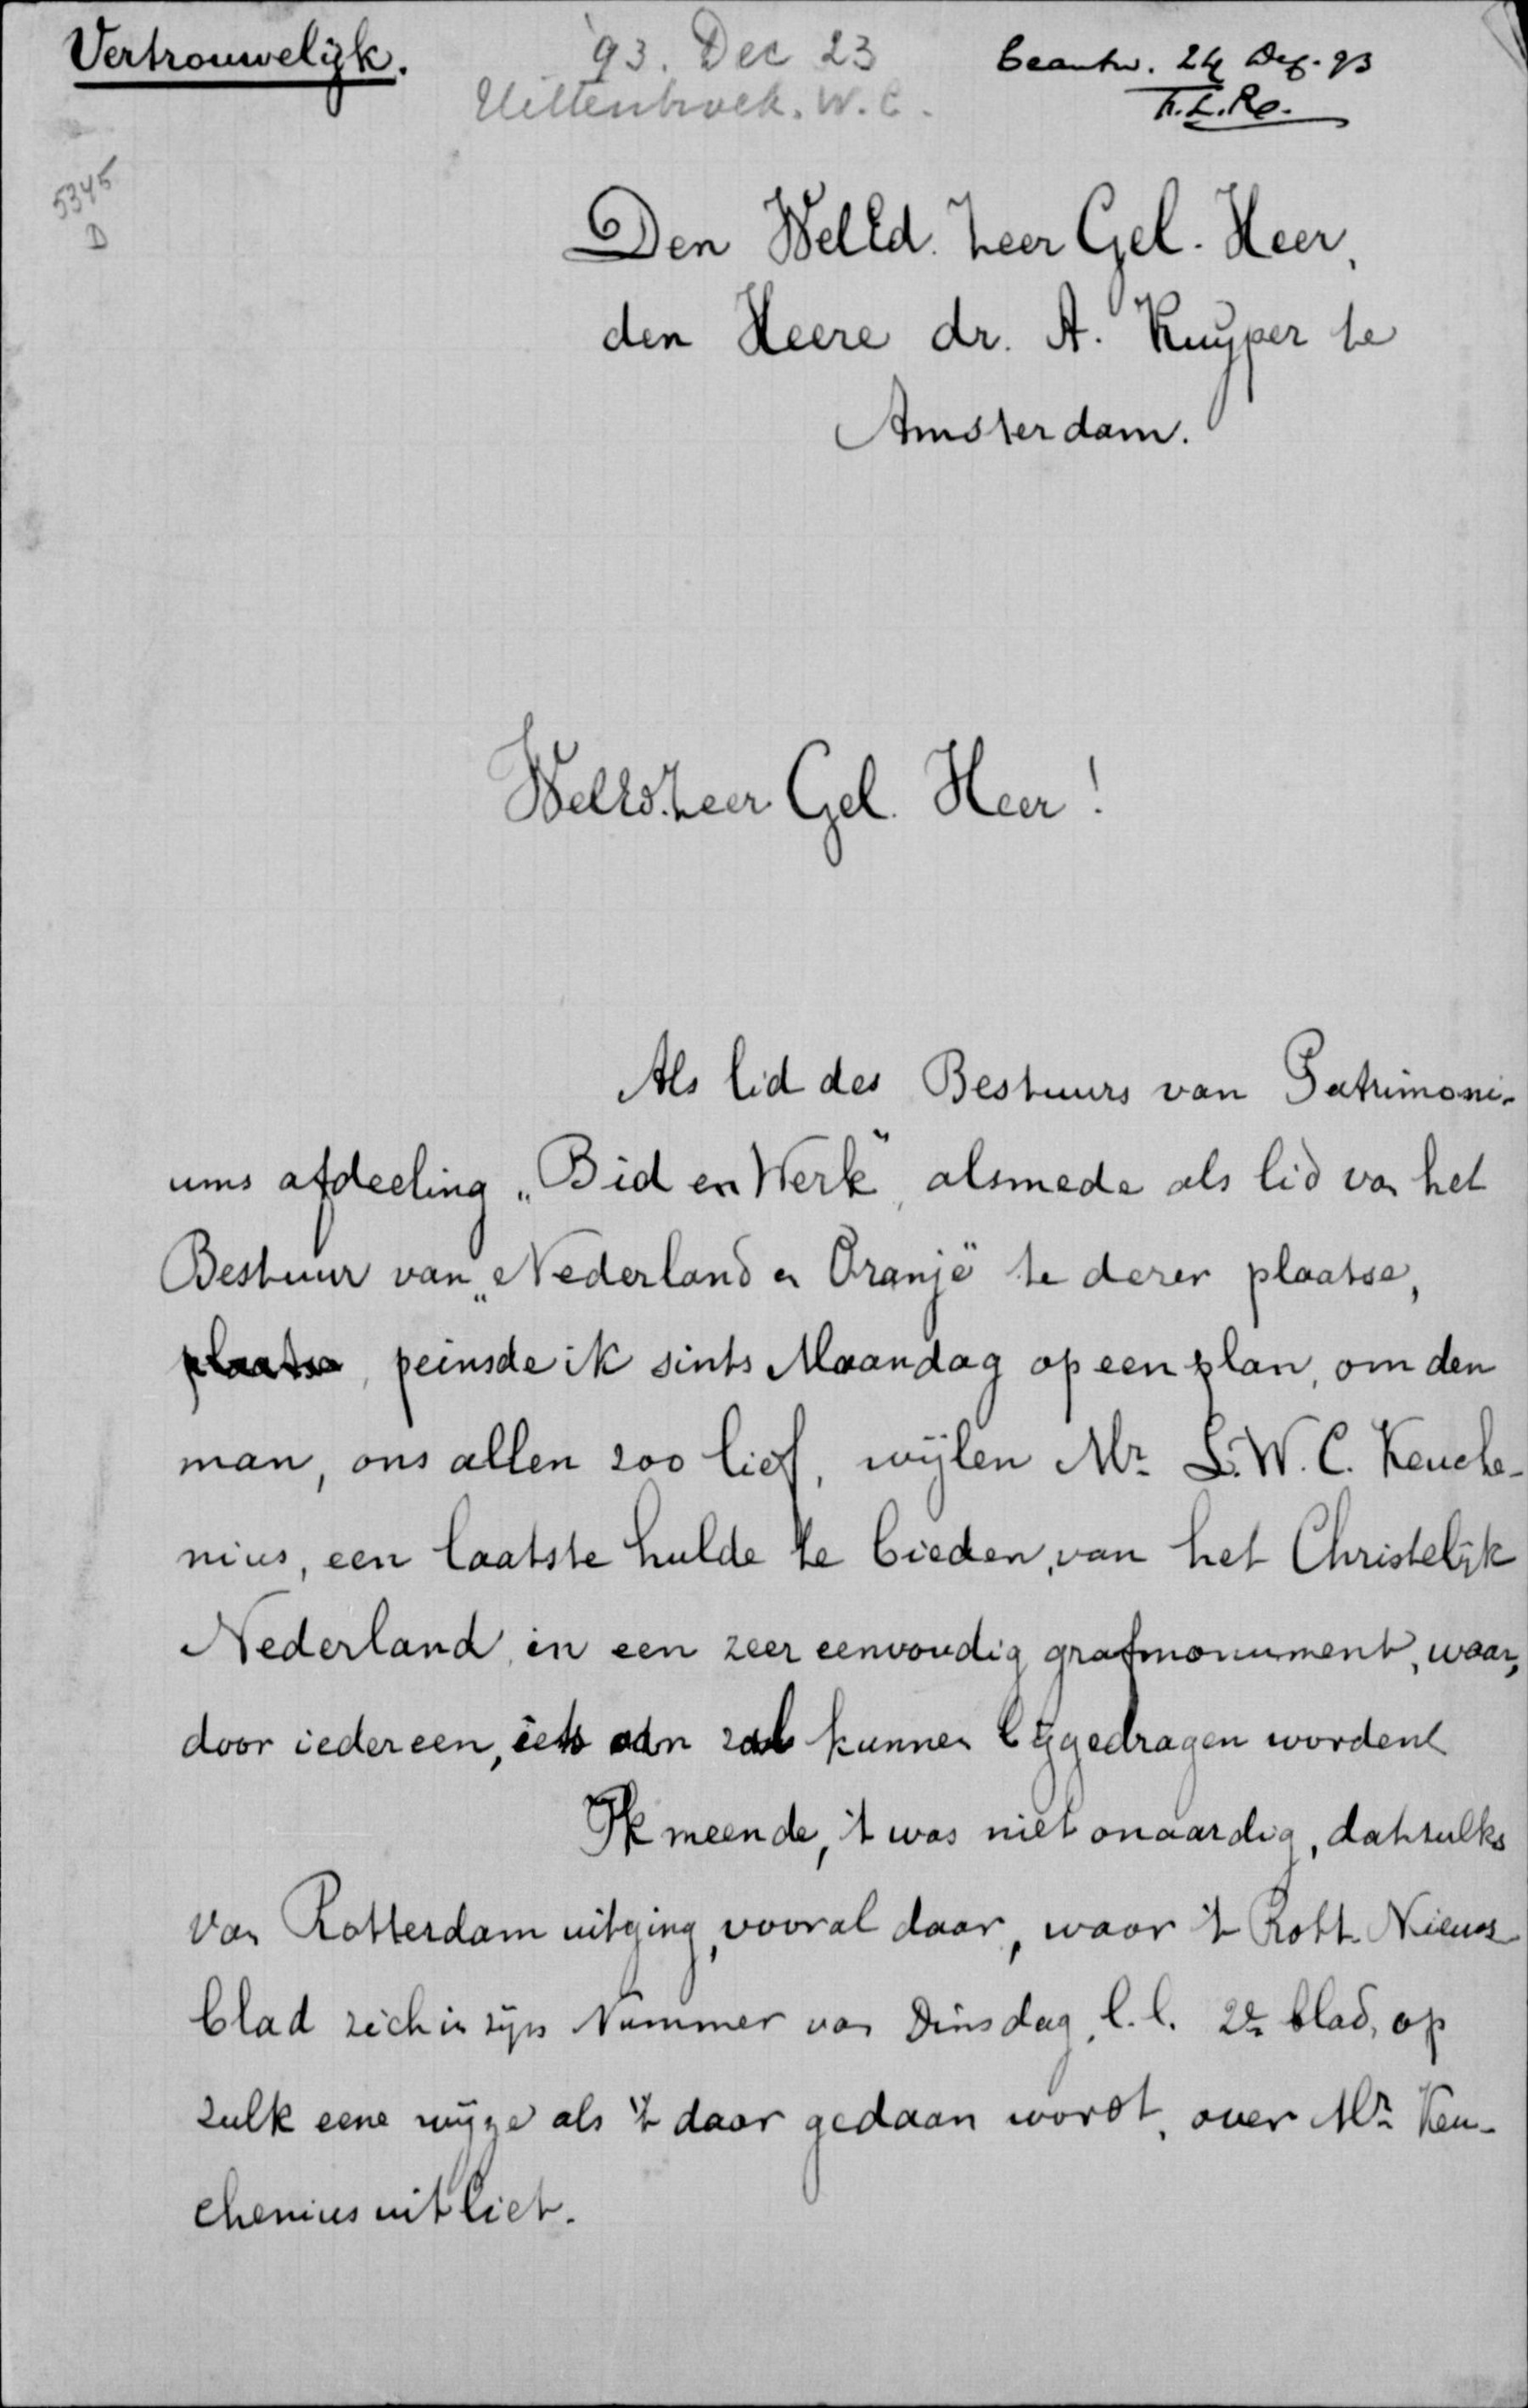 Vertrouwelijk.
'93. Dec 23
Uittenbroek. W. C.
beantw. 24 Dec. 93
5345
D
Den WelEd. Zeer Gel. Heer,
den Heere dr. A. Kuyper te
Amsterdam.
WelEd. Zeer Gel. Heer!
Als lid des Bestuurs van Patrimoni-
ums afdeeling „Bid en Werk", alsmede als lid van het
Bestuur van „Nederland en Oranje" te dezer plaatse,
plaatse, peinsde ik sints Maandag op een plan, om den
man, ons allen zoo lief, wijlen Mr. L. W. C. Keuche-
nius, een laatste hulde te bieden, van het Christelijk
Nederland, in een zeer eenvoudig grafmonument, waar,
door iedereen, iets aan zal kunnen bijgedragen worden.
Ik meende, 't was niet onaardig, dat zulks
van Rotterdam uitging, vooral daar, waar 't Rott. Nieuws
blad zich in zijn Nummer van Dinsdag, l.l. 2e blad, op
zulk eene wijze als 't daar gedaan wordt, over Mr. Keu-
chenius uitliet.